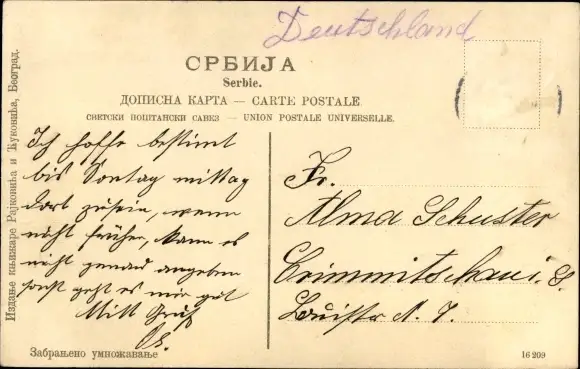 Deutschland
СРБИЈА
Serbie.
ДОПИСНА КАРТА — CARTE POSTALE
СВЕТСКИ ПОШТАНСКИ САВЕЗ — UNION POSTALE UNIVERSELLE.
Издање књижаре Рајковића и Ђуковића, Београд.
Ich hoffe bestimt
bis Sontag mittag
dort zusein, wenn
nicht früher, kann es
nicht genau angeben
sonst geht es mir gut
Mitt Gruß
Fr.
Alma Schuster
Crimmitschau i. S.
N. 7.
Забрањено умножавање
16 209